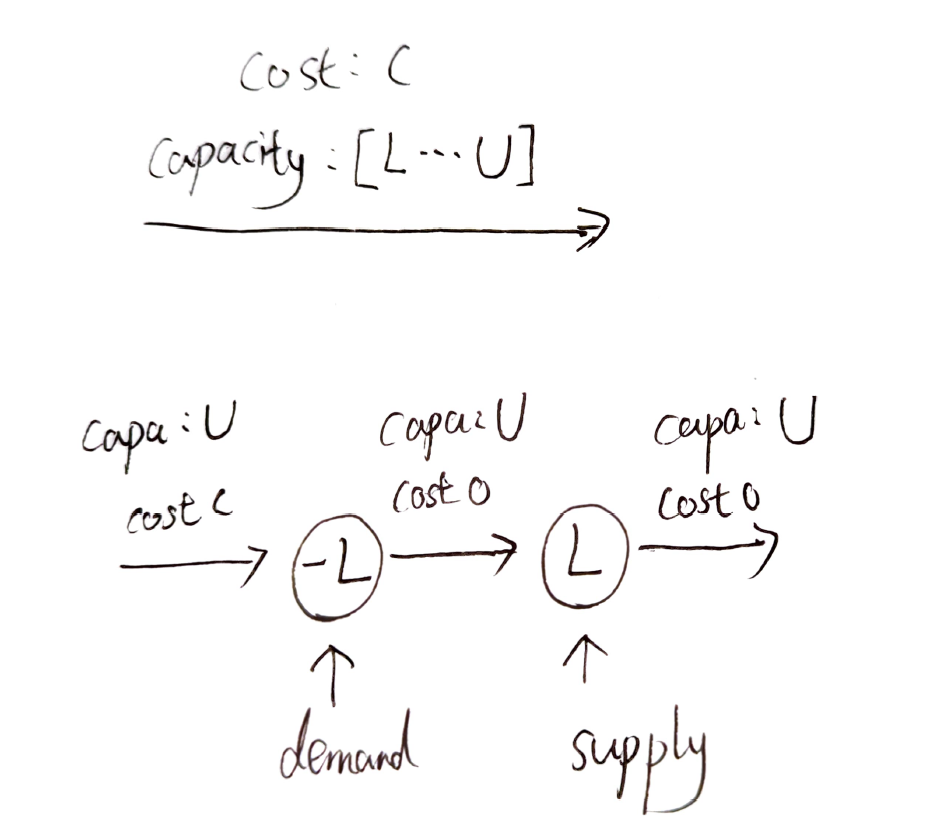 Cost: C
Capacity: [L ··· U]
capa: U
cost C
capa: U
cost 0
capa: U
cost 0
-L
L
demand
supply